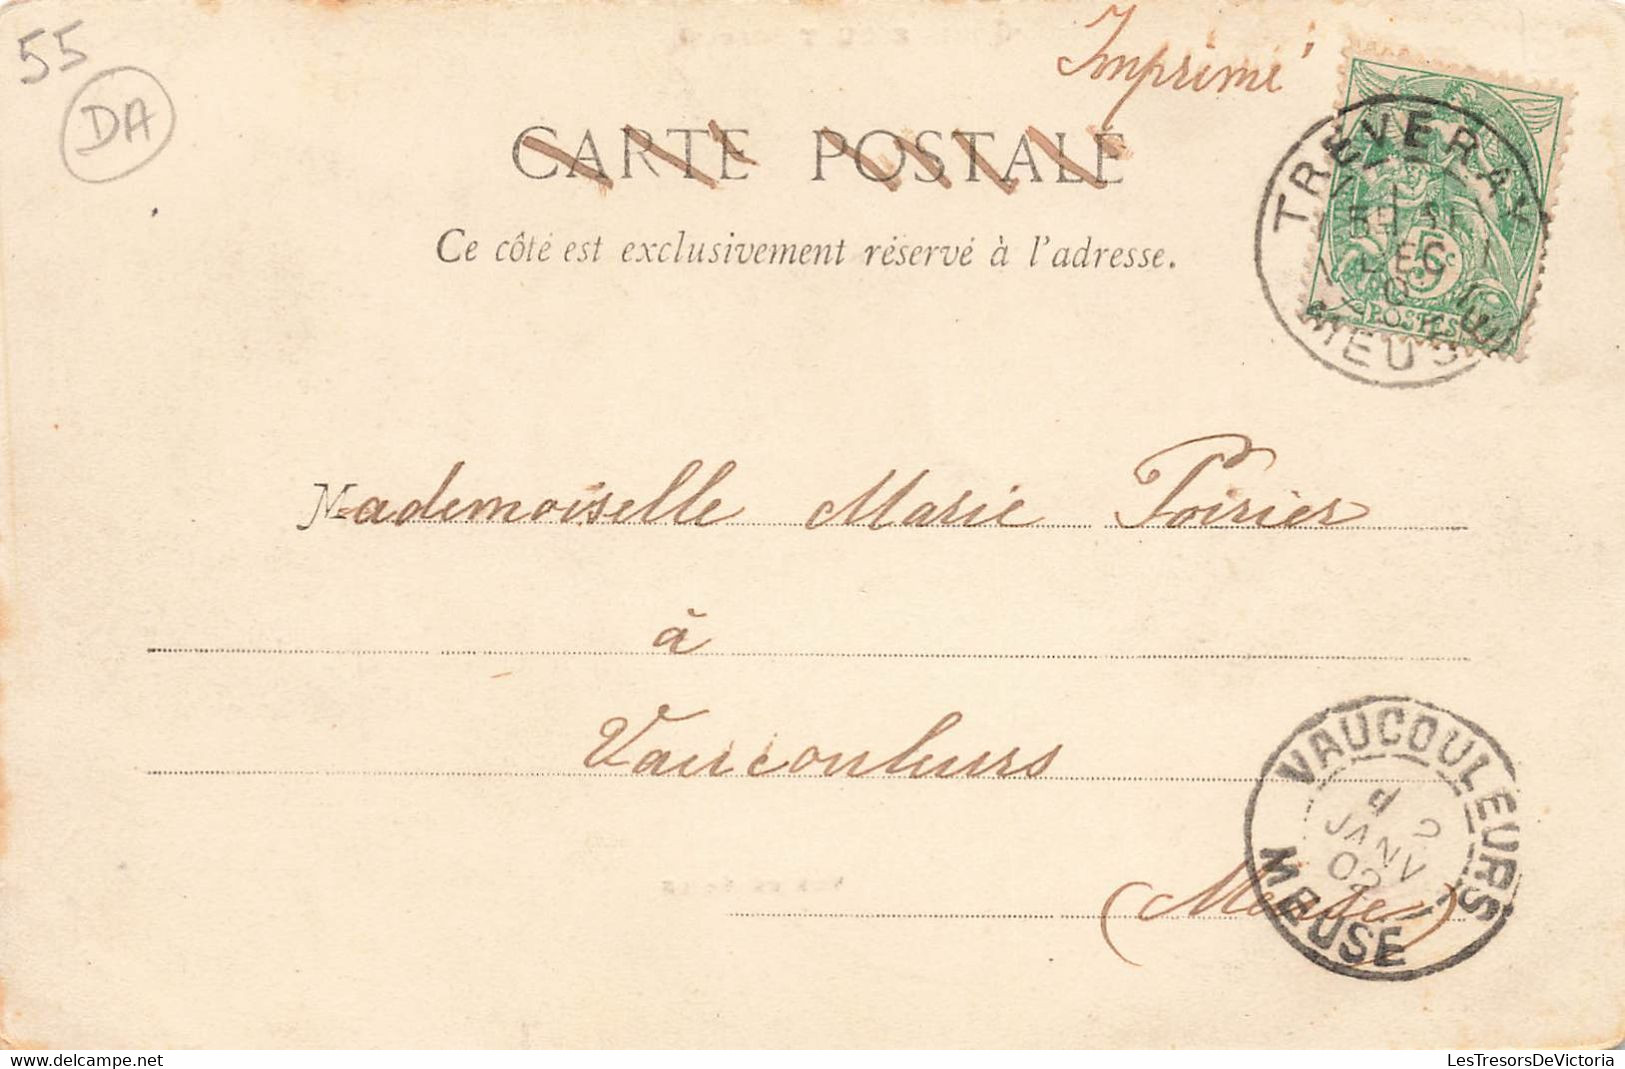 55
DA
Imprimé
CARTE POSTALE
Ce côté est exclusivement réservé à l'adresse.
TRÉVERAY
DEC
MEUSE
5c
POSTES
Mademoiselle Marie Poirier
à
Vaucouleurs
(Meuse)
VAUCOULEURS
2
JANV
02
MEUSE
LesTresorsDeVictoria